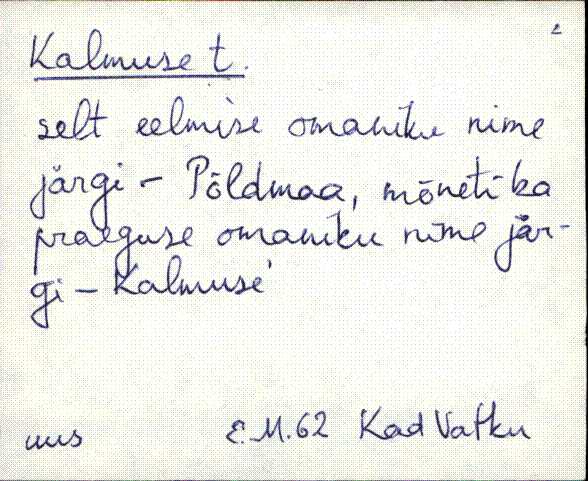 2
Kalmuse t.
selt eelmise omaniku nime
järgi - Põldmaa, mõneti ka
praeguse omaniku nime jär-
gi - Kalmuse'
uus E.M.62 Kad Vatku